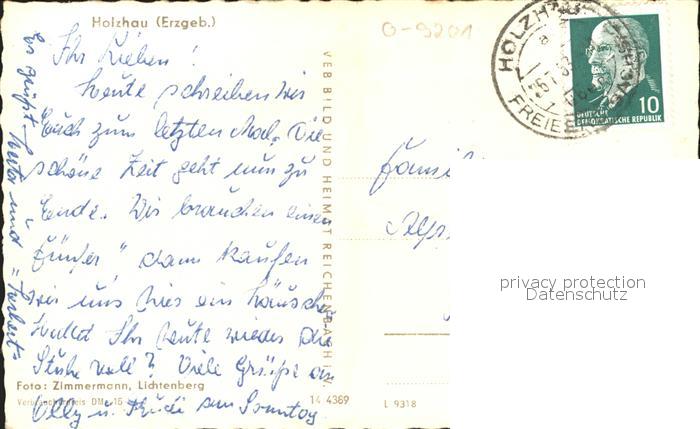 Holzhau (Erzgeb.)
O-9201
Ihr Lieben!
Heute schreiben wir
Euch zum letzten Mal. Die
schöne Zeit geht nun zu
Ende. Wir brauchen einen
"Fünfer" dann kaufen
wir uns hier ein Häusche
Ihr heute wieder die
Stube voll? Viele Grüße an
Foto: Zimmermann, Lichtenberg
Verbraucherpreis DM -,15
14 4389
L 9318
u. Rudi am Sonntag
Es grüßt und
VEB BILD UND HEIMAT REICHENBACH I. V.
HOLZHAU
FREIBERG
10
DEUTSCHE
DEMOKRATISCHE REPUBLIK
Famil
privacy protection
Datenschutz